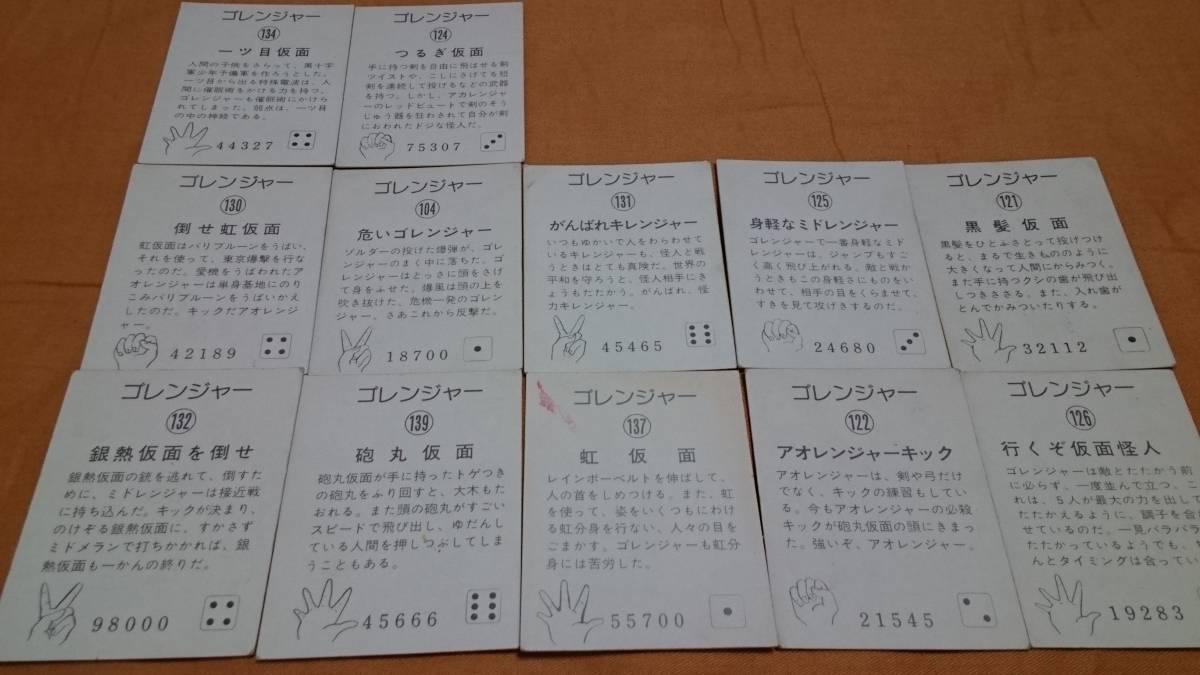 ゴレンジャー
134
一ツ目仮面
人間の子供をさらって、黒十字
軍少年予備軍を作ろうとした。
一ツ目から出る特殊電波は、人
間に催眠術をかける力を持つ。
ゴレンジャーも催眠術にかけら
れてしまった。弱点は、一ツ目
の中の神経である。
44327
ゴレンジャー
124
つるぎ仮面
手に持つ剣を自由に飛ばせる剣
ツイストや、こしにさげてる短
剣を連続して投げるなどの武器
を持つ。しかし、アカレンジャ
ーのレッドビュートで剣のそう
じゅう器を狂わされて自分が剣
におわれたドジな怪人だ。
75307
ゴレンジャー
130
倒せ虹仮面
虹仮面はバリブルーンをうばい、
それを使って、東京爆撃を行な
ったのだ。愛機をうばわれたア
オレンジャーは単身基地にのり
こみバリブルーンをうばいかえ
したのだ。キックだアオレンジ
ャー。
42189
ゴレンジャー
104
危いゴレンジャー
ゾルダーの投げた爆弾が、ゴレ
ンジャーのまく中に落ちた。ゴ
レンジャーはとっさに頭をさげ
て身をふせた。爆風は頭の上を
吹き抜けた、危機一発のゴレン
ジャー、さあこれから反撃だ。
18700
ゴレンジャー
131
がんばれキレンジャー
いつもゆかいで人をわらわせて
いるキレンジャーも、怪人と戦
うときはとても真険だ。世界の
平和を守ろうと、怪人相手にき
ょうもたたかう。がんばれ、怪
力キレンジャー。
45465
ゴレンジャー
125
身軽なミドレンジャー
ゴレンジャーで一番身軽なミド
レンジャーは、ジャンプもすご
く高く飛び上がれる。敵と戦か
うときもこの身軽さにものをい
わせて、相手の目をくらませて、
すきを見て攻げきするのだ。
24680
ゴレンジャー
121
黒髪仮面
黒髪をひとふさとって投げつけ
ると、まるで生きもののように
大きくなって人間にからみつく。
また手に持つクシの歯が飛び出
しつきささる。また、入れ歯が
とんでかみついたりする。
32112
ゴレンジャー
132
銀熱仮面を倒せ
銀熱仮面の銃を逃れて、倒すた
めに、ミドレンジャーは接近戦
に持ち込んだ。キックが決まり、
のけぞる銀熱仮面に、すかさず
ミドメランで打ちかかれば、銀
熱仮面も一かんの終りだ。
98000
ゴレンジャー
139
砲丸仮面
砲丸仮面が手に持ったトゲつき
の砲丸をふり回すと、大木もた
おれる。また頭の砲丸がすごい
スピードで飛び出し、ゆだんし
ている人間を押しつぶしてしま
うこともある。
45666
ゴレンジャー
137
虹仮面
レインボーベルトを伸ばして、
人の首をしめつける。また、虹
を使って、姿をいくつもにわけ
る虹分身を行ない、人々の目を
ごまかす。ゴレンジャーも虹分
身には苦労した。
55700
ゴレンジャー
122
アオレンジャーキック
アオレンジャーは、剣や弓だけ
でなく、キックの練習もしてい
る。今もアオレンジャーの必殺
キックが砲丸仮面の頭にきまっ
た。強いぞ、アオレンジャー。
21545
ゴレンジャー
126
行くぞ仮面怪人
ゴレンジャーは敵とたたかう前
に必らず、一度並んで立つ。こ
れは、5人が最大の力を出して
たたかえるように、調子を合
せているのだ。一見バラバラ
たたかっているようでも、
んとタイミングは合ってい
19283